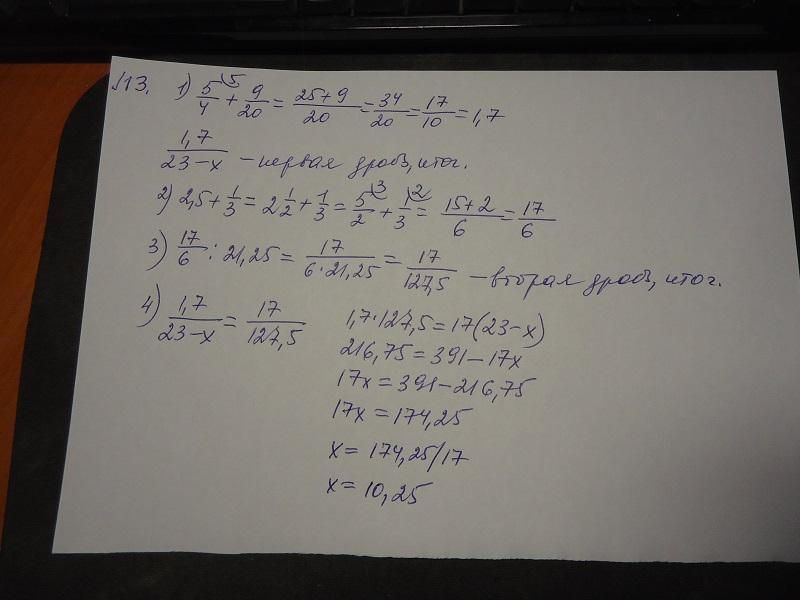 №13. 1) 5/4 \5 + 9/20 = (25+9)/20 = 34/20 = 17/10 = 1,7
1,7/(23-x) - первая дробь, итог.
2) 2,5 + 1/3 = 2 1/2 + 1/3 = 5/2 \3 + 1/3 \2 = (15+2)/6 = 17/6
3) 17/6 : 21,25 = 17/(6·21,25) = 17/127,5 - вторая дробь, итог.
4) 1,7/(23-x) = 17/127,5
1,7·127,5 = 17(23-x)
216,75 = 391-17x
17x = 391-216,75
17x = 174,25
x = 174,25/17
x = 10,25